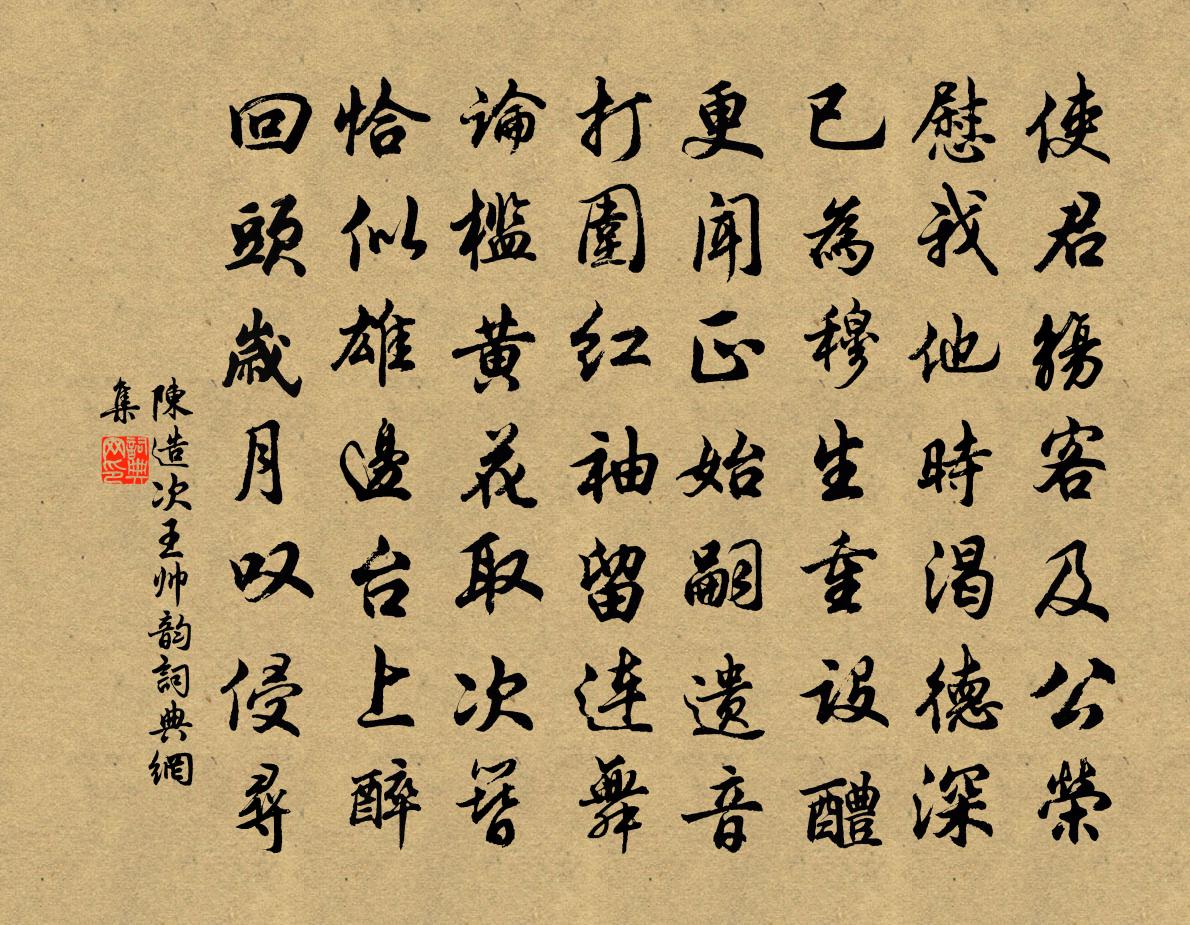 使君觴客及公榮
慰我他時渴德深
已為穆生重設醴
更聞正始嗣遺音
打圍紅袖留連舞
論檻黄花取次簪
恰似雄邊台上醉
回頭歲月叹侵尋
陳造次王帅韵詞典網
集
詞典
网印